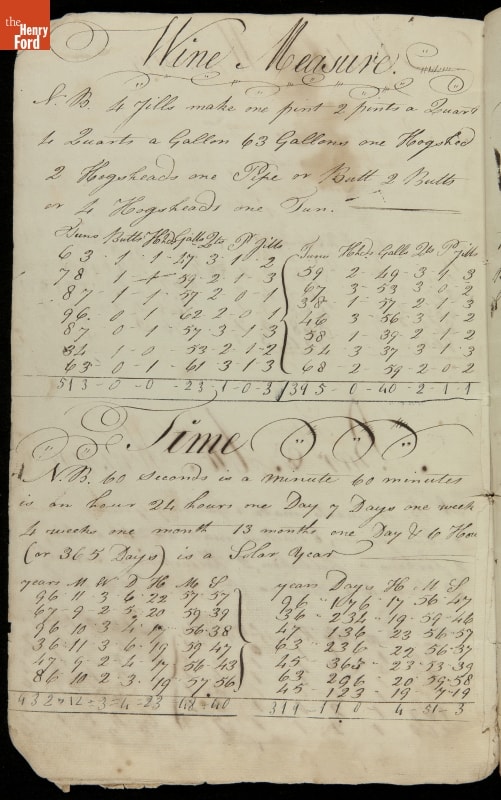 the
Henry
Ford
Wine Measure.
N.B. 4 Jills make one pint 2 pints a Quart
4 Quarts a Gallon 63 Gallons one Hogshed
2 Hogsheads one Pipe or Butt 2 Butts
or 4 Hogsheads one Tun.
Tuns Butts Hhds Galls Qts Pt Jills
63 - 1 - 1 - 47 - 3 - 1 - 2
78 - 1 - 1 - 59 - 2 - 1 - 3
87 - 1 - 1 - 57 - 2 - 0 - 1
96 - 0 - 1 - 62 - 2 - 0 - 1
87 - 0 - 1 - 57 - 3 - 1 - 3
34 - 1 - 0 - 53 - 2 - 1 - 2
63 - 0 - 1 - 61 - 3 - 1 - 3
513 - 0 - 0 - 23 - 1 - 0 - 3
Tuns Hhds Galls Qts Pt Jills
59 - 2 - 49 - 3 - 1 - 3
67 - 3 - 53 - 3 - 0 - 2
38 - 1 - 57 - 2 - 1 - 3
46 - 3 - 56 - 3 - 1 - 2
58 - 1 - 39 - 2 - 1 - 2
54 - 3 - 37 - 3 - 1 - 3
68 - 2 - 59 - 2 - 0 - 2
394 5 - 0 - 40 - 2 - 1 - 1
Time
N.B. 60 seconds is a minute 60 minutes
is an hour 24 hours one Day 7 Days one week
4 weeks one month 13 months one Day & 6 Hou
(or 365 Days) is a Solar Year
years M W D H M S
96 11 3 6 22 57 - 57
67 - 9 - 2 - 5 - 20 - 59 - 39
96 10 - 3 - 4 - 17 - 56 - 38
36 - 11 - 3 - 6 - 19 - 59 - 47
47 - 9 - 2 - 4 - 17 - 56 - 43
86 - 10 - 2 - 3 - 19 - 57 - 56
432 - 12 - 3 - 4 - 23 - 48 - 40
years Days H M S
96 - 176 - 17 - 56 - 47
36 - 234 - 19 - 59 - 46
47 - 136 - 23 - 56 - 57
63 - 236 - 22 - 56 - 37
45 - 365 - 23 - 53 - 39
63 - 296 - 20 - 59 - 58
45 - 123 - 19 - 7 - 19
4 - 51 - 3